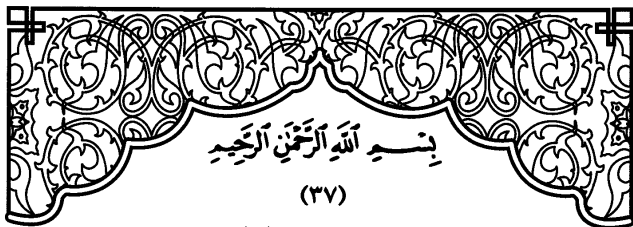 بِسْمِ ٱللَّهِ ٱلرَّحْمَٰنِ ٱلرَّحِيمِ
(٣٧)